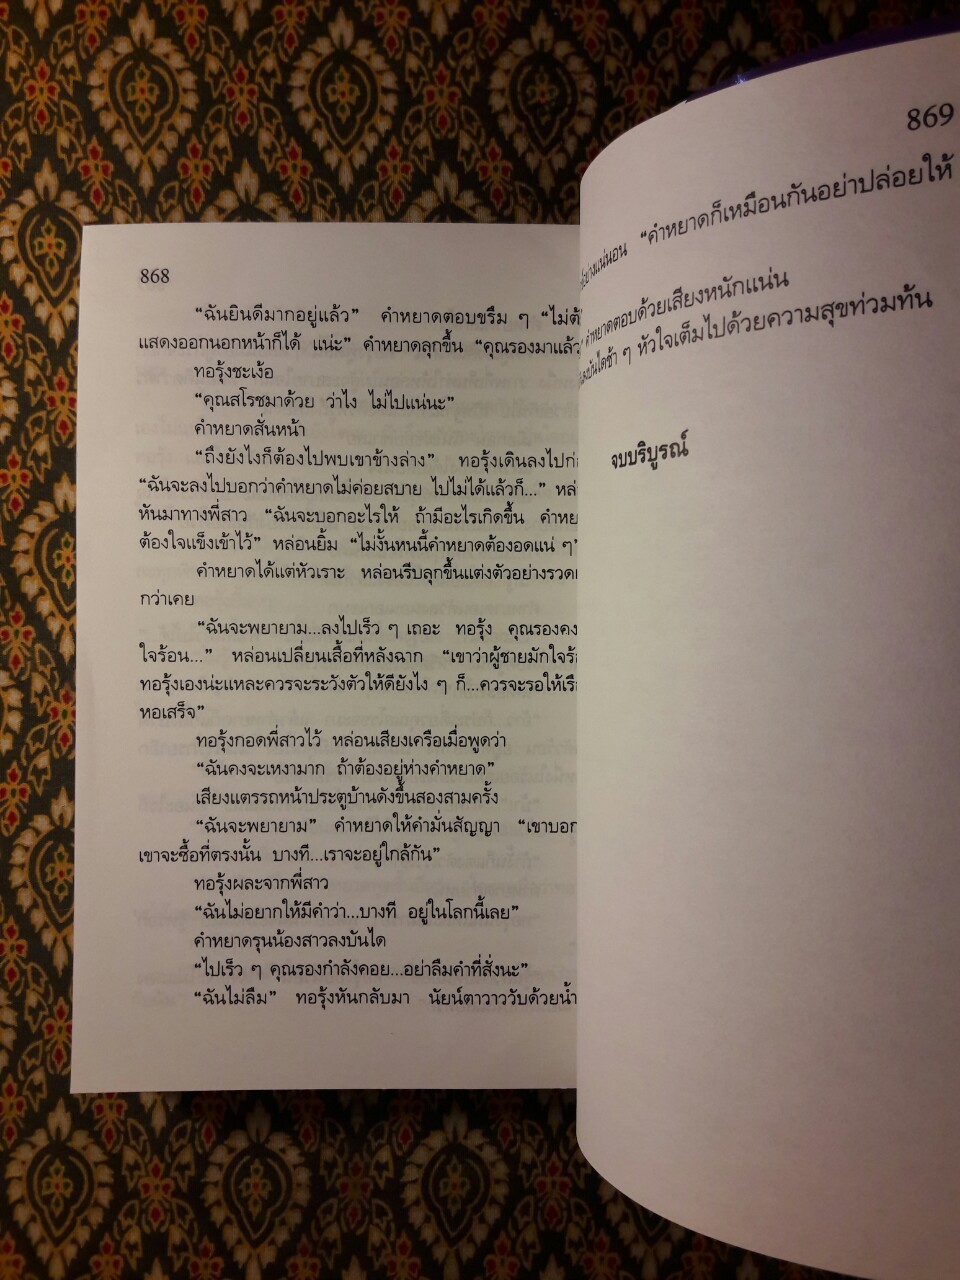 868
“ฉันยินดีมากอยู่แล้ว” คำหยาดตอบขรึม ๆ “ไม่ต้
แสดงออกนอกหน้าก็ได้ แน่ะ” คำหยาดลุกขึ้น “คุณรองมาแล้ว
ทอรุ้งชะเง้อ
“คุณสโรชมาด้วย ว่าไง ไม่ไปแน่นะ”
คำหยาดสั่นหน้า
“ถึงยังไงก็ต้องไปพบเขาข้างล่าง” ทอรุ้งเดินลงไปก่
“ฉันจะลงไปบอกว่าคำหยาดไม่ค่อยสบาย ไปไม่ได้แล้วก็...” หล่
หันมาทางพี่สาว “ฉันจะบอกอะไรให้ ถ้ามีอะไรเกิดขึ้น คำหย
ต้องใจแข็งเข้าไว้” หล่อนยิ้ม “ไม่งั้นหนนี้คำหยาดต้องอดแน่ ๆ”
คำหยาดได้แต่หัวเราะ หล่อนรีบลุกขึ้นแต่งตัวอย่างรวดเ
กว่าเคย
“ฉันจะพยายาม...ลงไปเร็ว ๆ เถอะ ทอรุ้ง คุณรองคง
ใจร้อน...” หล่อนเปลี่ยนเสื้อที่หลังฉาก “เขาว่าผู้ชายมักใจร้อ
ทอรุ้งเองน่ะแหละควรจะระวังตัวให้ดียังไง ๆ ก็...ควรจะรอให้เรือ
หอเสร็จ”
ทอรุ้งกอดพี่สาวไว้ หล่อนเสียงเครือเมื่อพูดว่า
“ฉันคงจะเหงามาก ถ้าต้องอยู่ห่างคำหยาด”
เสียงแตรรถหน้าประตูบ้านดังขึ้นสองสามครั้ง
“ฉันจะพยายาม” คำหยาดให้คำมั่นสัญญา “เขาบอก
เขาจะซื้อที่ตรงนั้น บางที...เราจะอยู่ใกล้กัน”
ทอรุ้งผละจากพี่สาว
“ฉันไม่อยากให้มีคำว่า...บางที อยู่ในโลกนี้เลย”
คำหยาดรุนน้องสาวลงบันได
“ไปเร็ว ๆ คุณรองกำลังคอย...อย่าลืมคำที่สั่งนะ”
“ฉันไม่ลืม” ทอรุ้งหันกลับมา นัยน์ตาวาววับด้วยน้ำ
869
อย่างแน่นอน “คำหยาดก็เหมือนกันอย่าปล่อยให้
คำหยาดตอบด้วยเสียงหนักแน่น
ลงบันไดช้า ๆ หัวใจเต็มไปด้วยความสุขท่วมท้น
จบบริบูรณ์